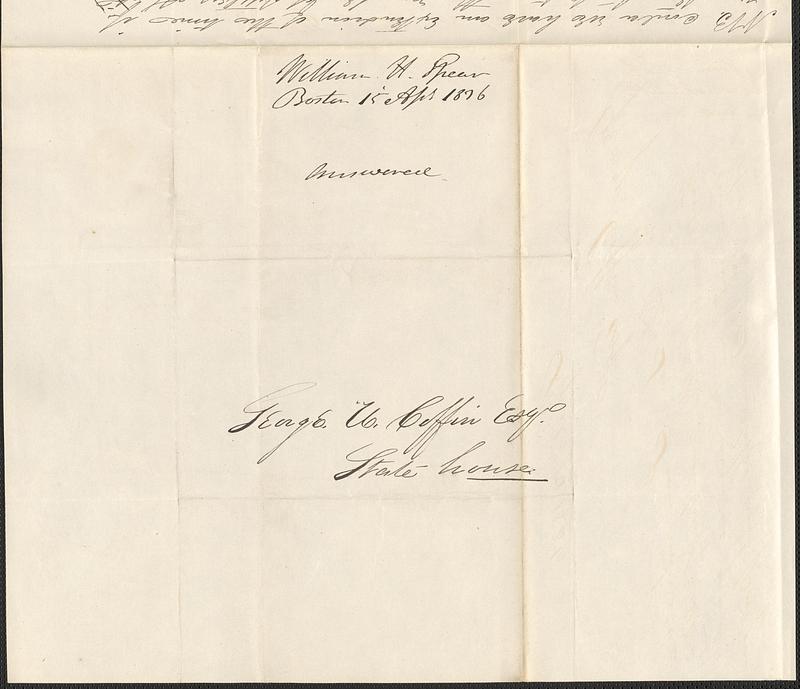 N.B. Could we have an Extension of the time if
William H. Spear
Boston 15 Apl 1836
Answered
George W. Coffin Esqr.
State house